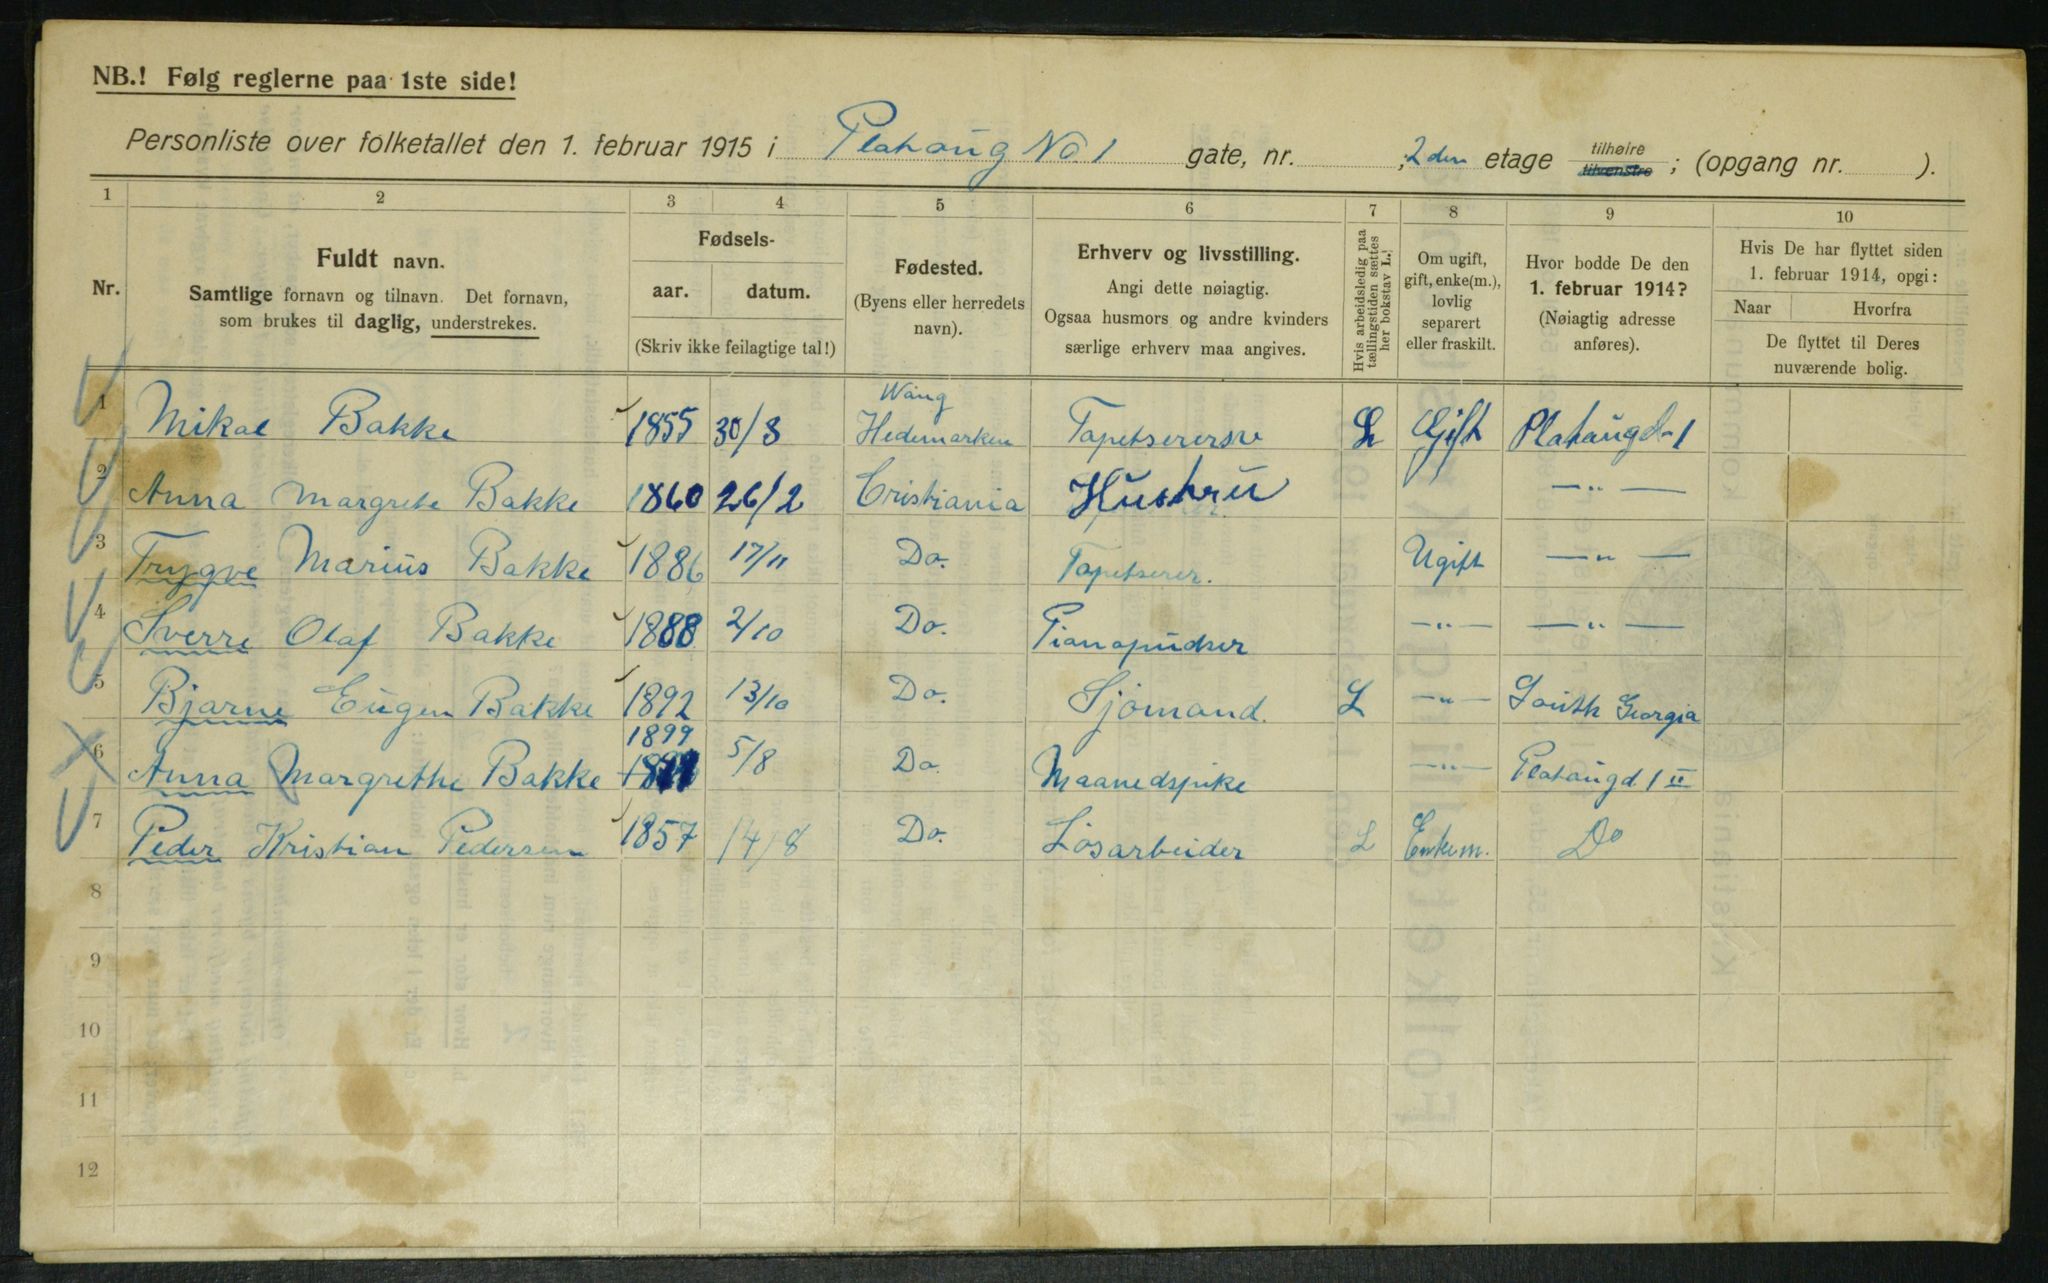 NB.! Følg reglerne paa 1ste side!
Personliste over folketallet den 1. februar 1915 i Platoug No 1 gate, nr. 2den etage tilhøire tilvenstre ; (opgang nr. ).
1 2 3 4 5 6 7 8 9 10
Nr.
Fuldt navn.
Samtlige fornavn og tilnavn. Det fornavn,
som brukes til daglig, understrekes.
Fødsels-
aar. datum.
(Skriv ikke feilagtige tal!)
Fødested.
(Byens eller herredets
navn).
Erhverv og livsstilling.
Angi dette nøiagtig.
Ogsaa husmors og andre kvinders
særlige erhverv maa angives.
Hvis arbeidsledig paa
tællingstiden sættes
her bokstav L.
Om ugift,
gift, enke(m.),
lovlig
separert
eller fraskilt.
Hvor bodde De den
1. februar 1914?
(Nøiagtig adresse
anføres).
Hvis De har flyttet siden
1. februar 1914, opgi:
Naar Hvorfra
De flyttet til Deres
nuværende bolig.
Wang
1 Mikal Bakke 1855 30/8 Hedemarken L Gift Platougd-1
2 Anna Margrete Bakke 1860 26/2 Cristiania Hustru —"—
3 Trygve Marius Bakke 1886 17/11 Do. Tapetserer. Ugift —"—
4 Sverre Olaf Bakke 1888 2/10 Do. Pianopudser —"— —"—
5 Bjarne Eugen Bakke 1892 13/10 Do. Sjömand. L —"— South Georgia
1899
6 Anna Margrethe Bakke 5/8 Do Maanedspike —"— Platougd 1 II
7 Peder Kristian Pedersen 1857 14/8 Do. Lösarbeider L Enkem. Do
8
9
10
11
12